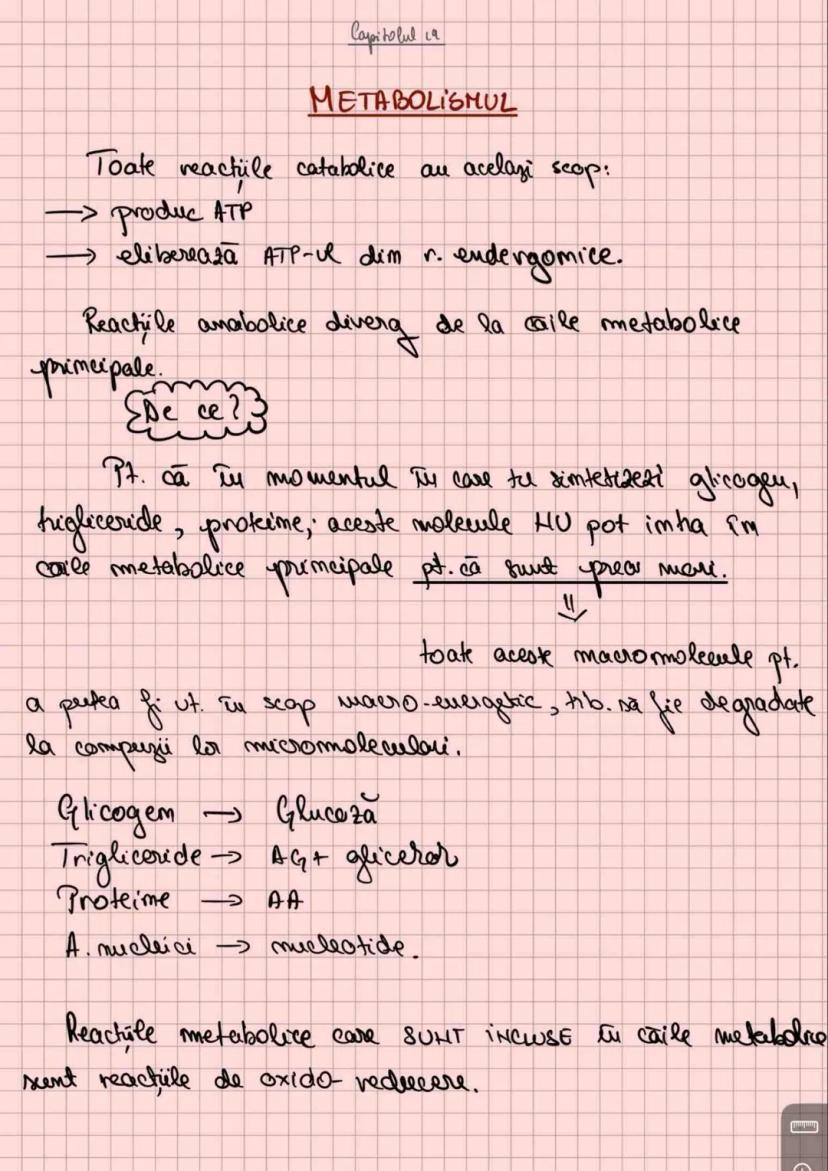 Capitolul 19
METABOLISMUL
Toate reacțiile catabolice au același scop:
→ produc ATP
→ eliberează ATP-ul din r. endergonice.
Reacțiile anabolice diverg de la căile metabolice
principale.
De ce?
Pt. că în momentul în care tu sintetizezi glicogen,
trigliceride, proteine; aceste molecule NU pot intra în
căile metabolice principale pt. că sunt prea mari.
⇓
toate aceste macromolecule pt.
a putea fi ut. în scop macro-energetic, trb. să fie degradate
la compușii lor micromoleculari.
Glicogen → Glucoză
Trigliceride → AG + glicerol
Proteine → AA
A. nucleici → nucleotide.
Reacțiile metabolice care SUNT INCLUSE în căile metabolice
sunt reacțiile de oxido-reducere.